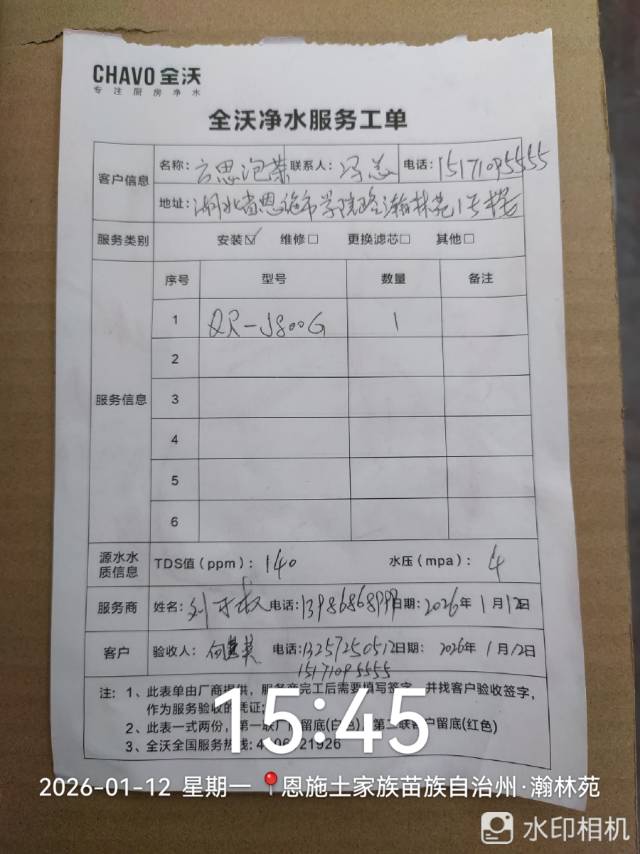 CHAVO 全沃
专注厨房净水
全沃净水服务工单
客户信息
名称: 六思泡菜 联系人: 冯总 电话: 15171095555
地址: 湖北省恩施市学院路瀚林苑1号楼
服务类别 安装☑ 维修□ 更换滤芯□ 其他□
服务信息
序号 型号 数量 备注
1 QR-J800G 1
2
3
4
5
6
源水水质信息 TDS值(ppm): 140 水压(mpa): 4
服务商 姓名: 刘 电话: 日期: 2026年1月12日
客户 验收人: 向 电话: 13257250512 日期: 2026年1月12日
15171095555
注: 1、此表单由厂商提供,服务商完工后需要填写签字,并找客户验收签字,
作为服务验收的凭证;
2、此表一式两份,第一联厂商留底(白色),第二联客户留底(红色)
3、全沃全国服务热线:
15:45
2026-01-12 星期一 恩施土家族苗族自治州·瀚林苑
水印相机